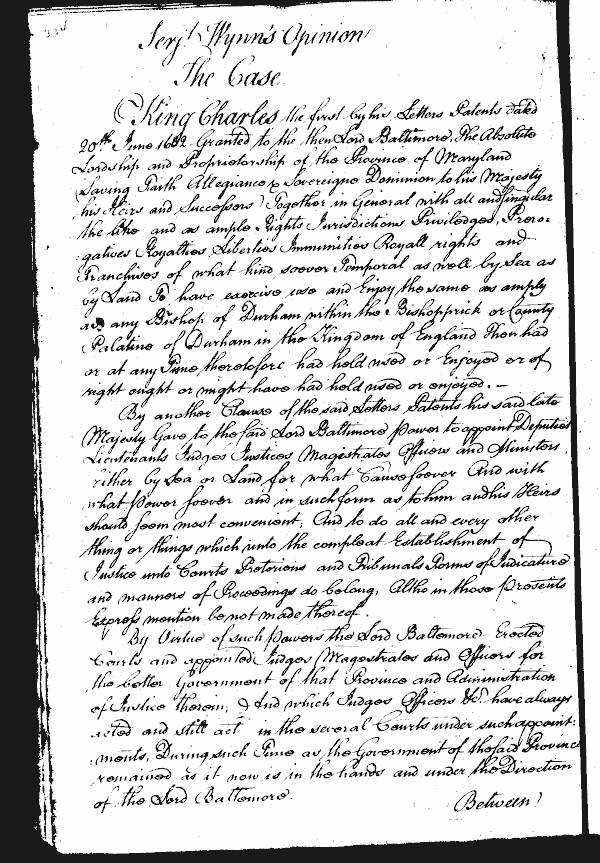 Serjt. Wynn's Opinion
The Case
King Charles the first by his Letters Patents dated
20th June 1632 Granted to the then Lord Baltimore, The Absolute
Lordship and Proprietorship of the Province of Maryland
(Saving Faith Allegiance & Sovereigne Dominion to his Majesty
his Heirs and Successors) Together in General with all and singular
the like and as ample Rights Jurisdictions Priviledges, Prero-
-gatives Royalties Liberties Immunities Royall rights and
Franchises of what kind soever Temporal as well by Sea as
by Land To have exercise use and Enjoy the same as amply
as any Bishop of Durham within the Bishopprick or County
Palatine of Durham in the Kingdom of England Then had
or at any Time theretofore had held used or Enjoyed or of
right ought or might have had held used or enjoyed. —
By another Clause of the said Letters Patents his said late
Majesty Gave to the said Lord Baltimore Power to appoint Deputies
Lieutenants Judges Justices Magestrates Officers and Ministers
either by Sea or Land for what Cause soever And with
what Power soever and in such form as to him and his Heirs
should seem most convenient, And to do all and every other
thing or things which unto the compleat Establishment of
Justice unto Courts Pretorious and Tribunals Forms of Judicature
and manners of Proceedings do belong, Altho in those Presents
Express mention be not made thereof.
By Virtue of such Powers the Lord Baltemore Erected
Courts and appointed Judges Magestrates and Officers for
the better Government of that Province and Administration
of Justice therein, & And which Judges Officers &c. have always
acted and still act in the several Courts under such appoint:
:ments, During such Time as the Government of the said Province
remained as it now is in the hands and under the Direction
of the Lord Baltemore.
Between